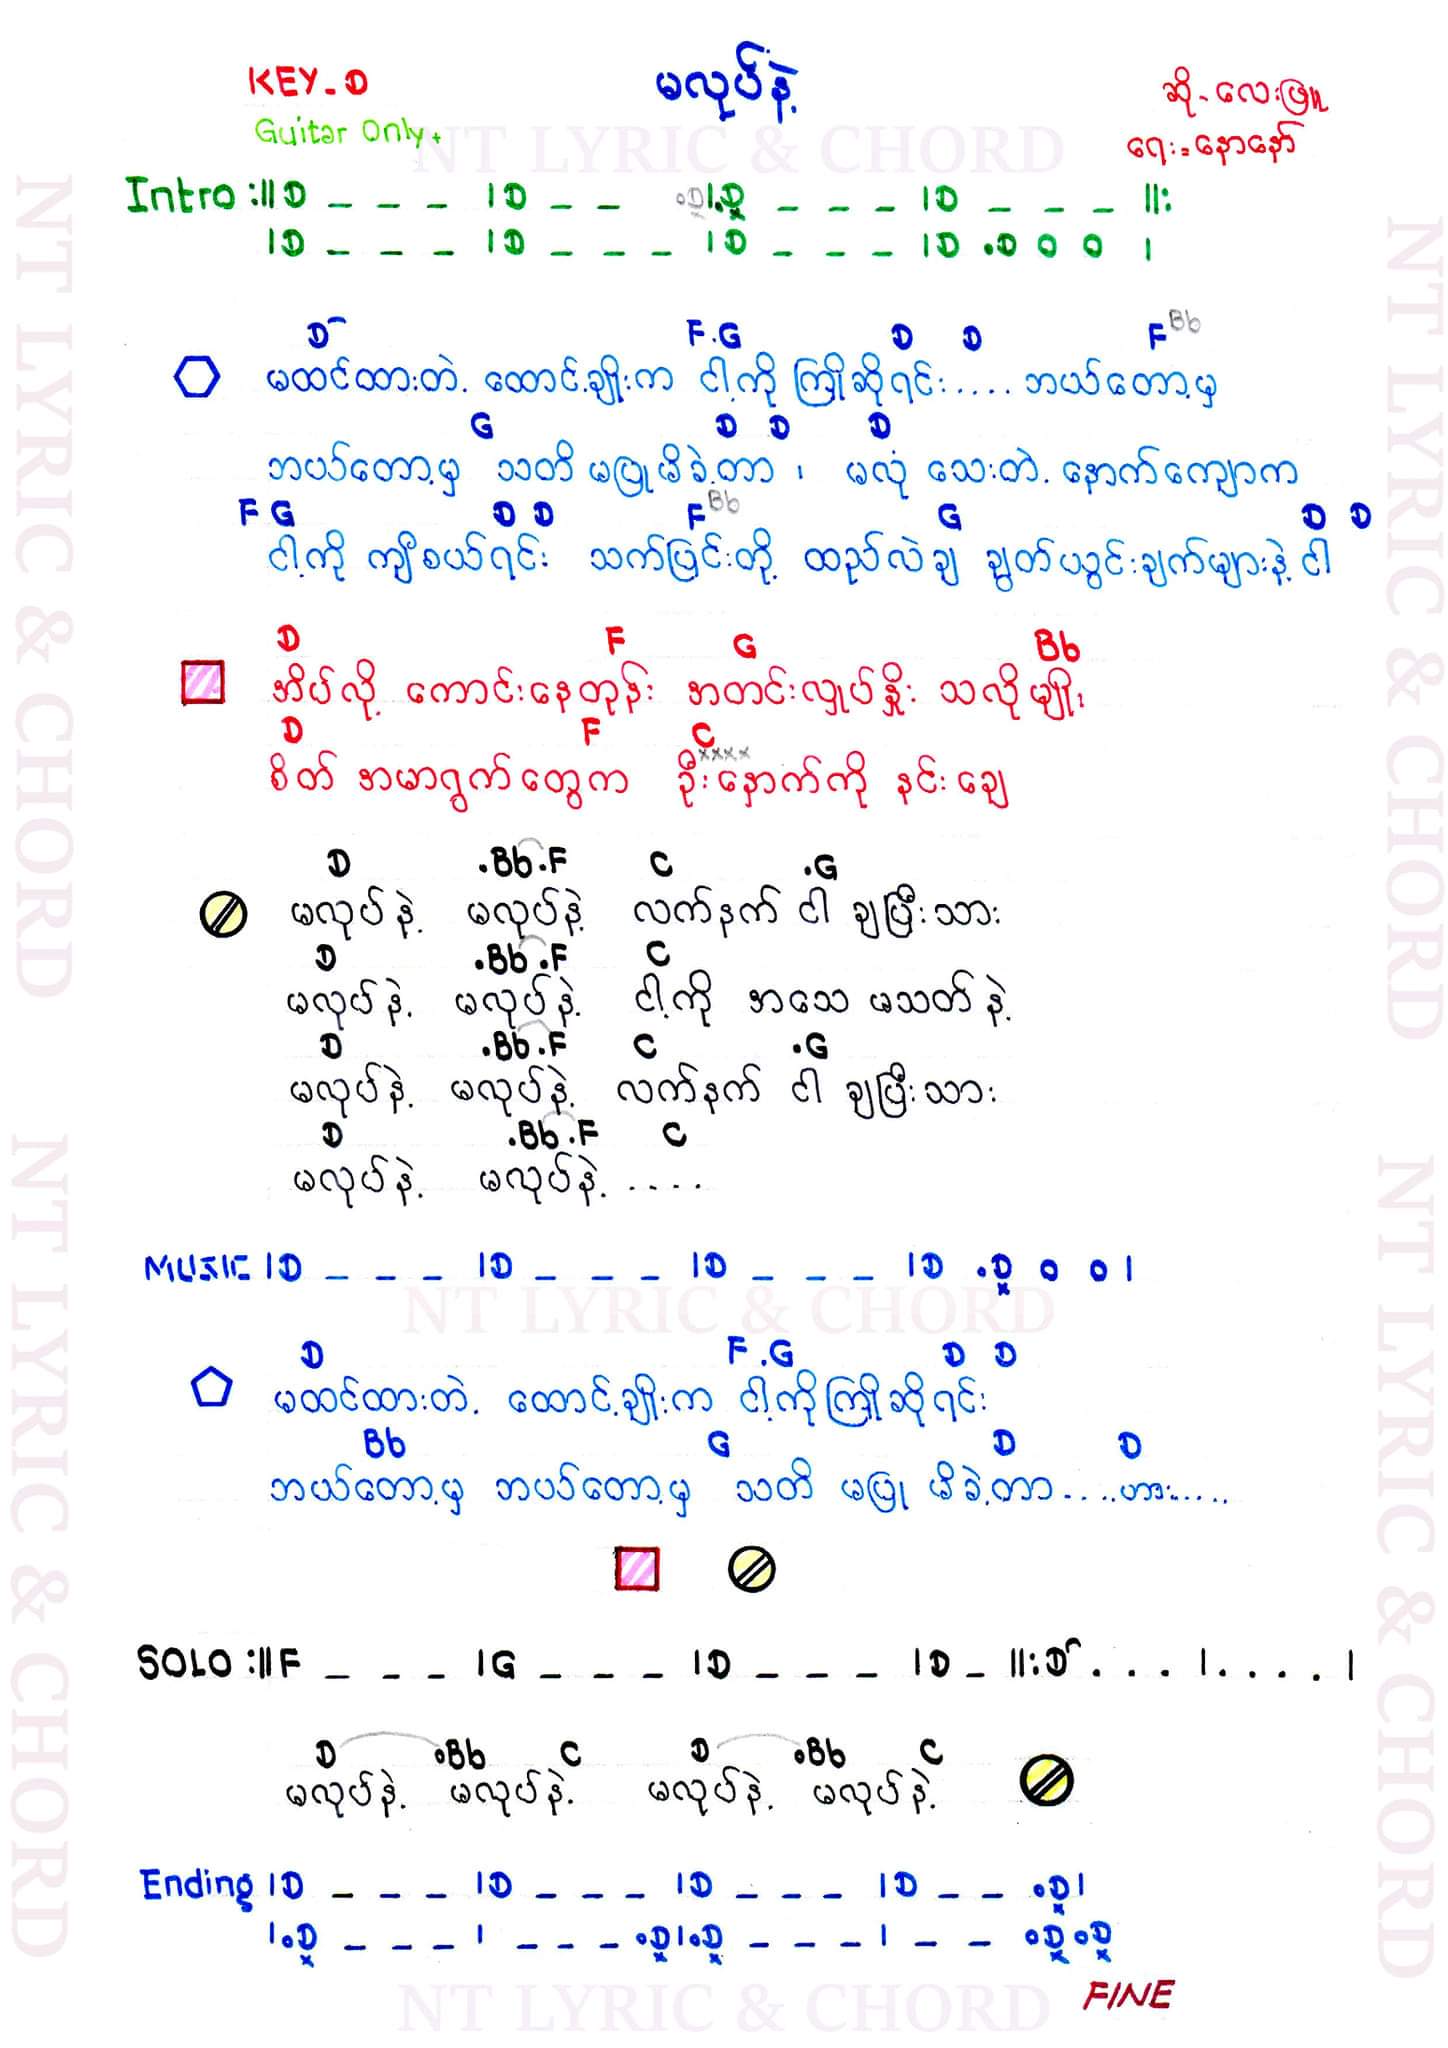 KEY-D
မလုပ်နဲ့
ဆို-လေးဖြူ
Guitar Only
ရေး-နောနော်
NT LYRIC & CHORD
Intro :|| D _ _ _ | D _ _ .D | .D _ _ _ | D _ _ _ ||:
| D _ _ _ | D _ _ _ | D _ _ _ | D .D 0 0 |
D F.G D D F Bb
မထင်ထားတဲ့ ထောင့်ချိုးက ငါ့ကို ကြိုဆိုရင်း.... ဘယ်တော့မှ
G D D D
ဘယ်တော့မှ သတိ မပြုမိခဲ့တာ ၊ မလုံ သေးတဲ့ နောက်ကျောက
F G D D F Bb G D D
ငါ့ကို ကျီစယ်ရင်း သက်ပြင်းတို့ ထည်လဲချ ချွတ်ယွင်းချက်များနဲ့ ငါ
D F G Bb
အိပ်လို့ ကောင်းနေတုန်း အတင်းလှုပ်နှိုး သလိုမျိုး
D F C
xxxx
စိတ် အမာရွတ်တွေက ဦးနှောက်ကို နင်းချေ
D .Bb.F C .G
မလုပ်နဲ့ မလုပ်နဲ့ လက်နက် ငါ ချပြီးသား
D .Bb.F C
မလုပ်နဲ့ မလုပ်နဲ့ ငါ့ကို အသေ မသတ်နဲ့
D .Bb.F C .G
မလုပ်နဲ့ မလုပ်နဲ့ လက်နက် ငါ ချပြီးသား
D .Bb.F C
မလုပ်နဲ့ မလုပ်နဲ့ ....
MUSIC | D _ _ _ | D _ _ _ | D _ _ _ | D .D 0 0 |
NT LYRIC & CHORD
D F.G D D
မထင်ထားတဲ့ ထောင့်ချိုးက ငါ့ကိုကြိုဆိုရင်း
Bb G D D
ဘယ်တော့မှ ဘယ်တော့မှ သတိ မပြု မိခဲ့တာ....ဟား....
SOLO :|| F _ _ _ | G _ _ _ | D _ _ _ | D _ ||: D . . . | . . . . |
D .Bb C D .Bb C
မလုပ်နဲ့ မလုပ်နဲ့ မလုပ်နဲ့ မလုပ်နဲ့
Ending | D _ _ _ | D _ _ _ | D _ _ _ | D _ _ .D |
| .D _ _ _ | _ _ _ .D | .D _ _ _ | _ _ .D .D
FINE
NT LYRIC & CHORD
NT LYRIC & CHORD
NT LYRIC & CHORD
NT LYRIC & CHORD
NT LYRIC & CHORD